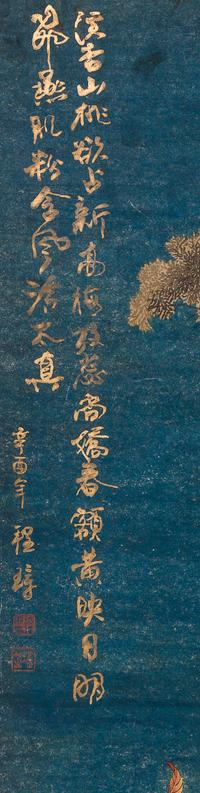 溪杏山桃欲占新高梅放蕊尚嬌春額黃映日明
飛燕肌粉含風冷太真
辛酉年 程璋